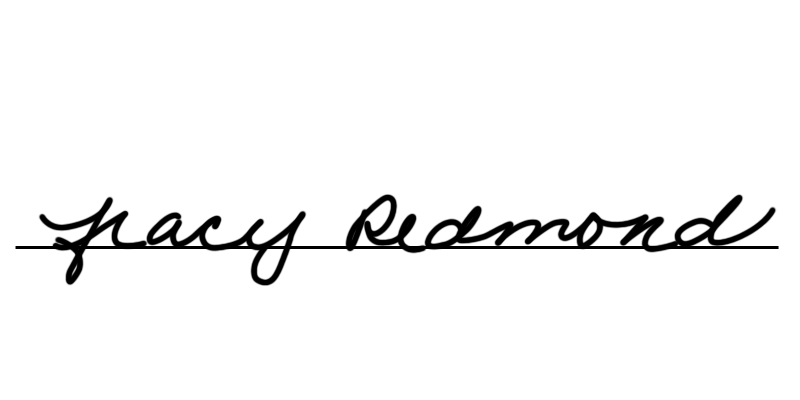 Tracy Redmond